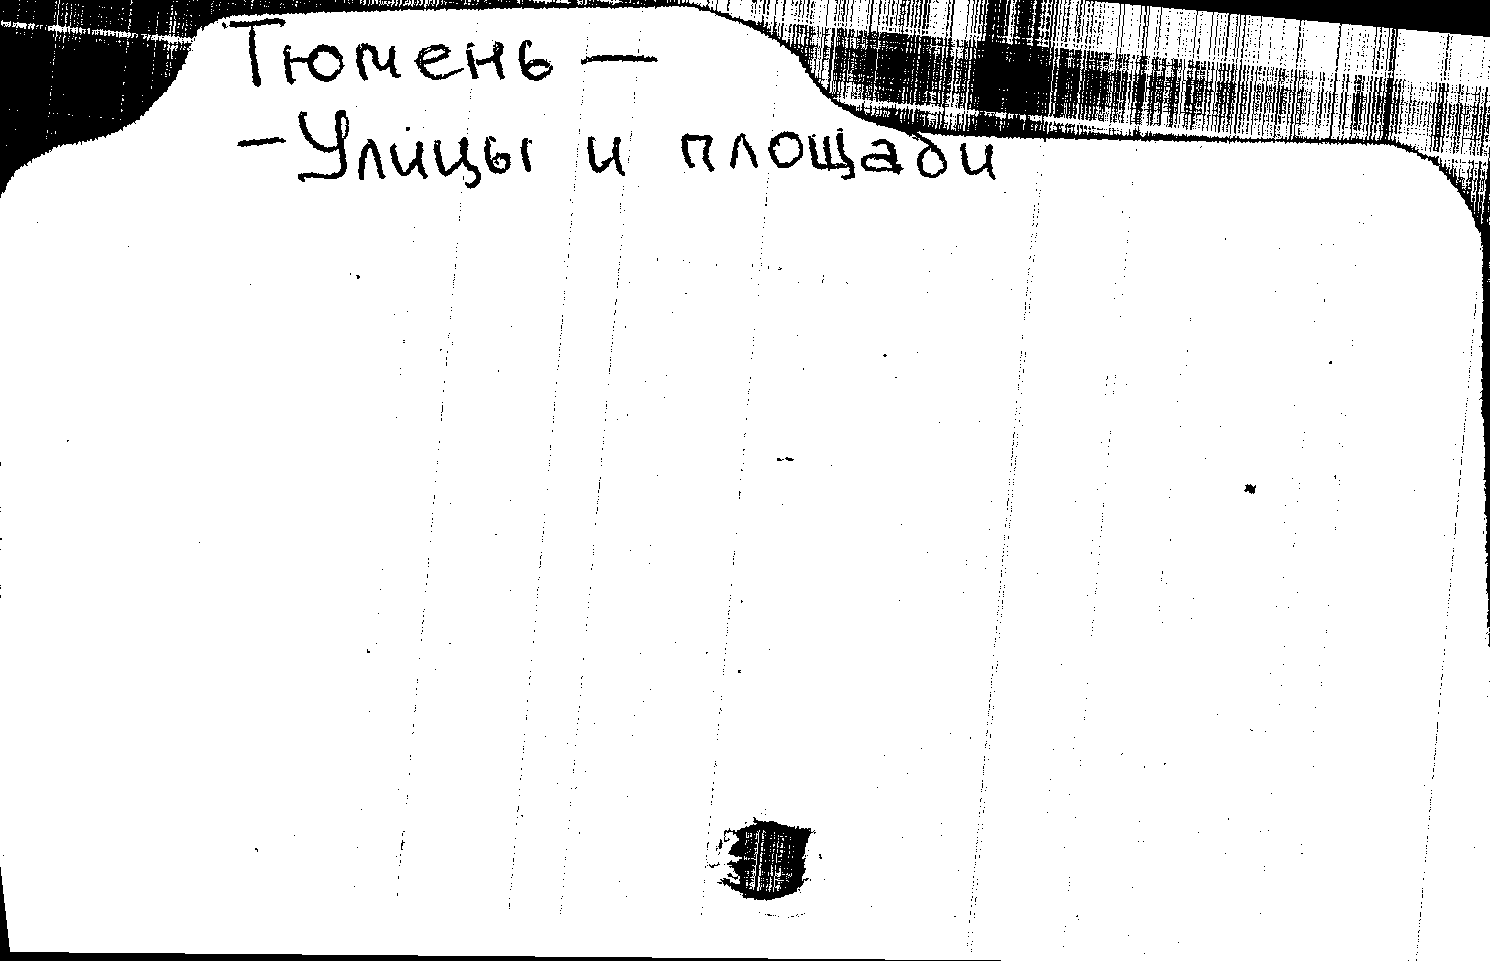 Тюмень —
— Улицы и площади